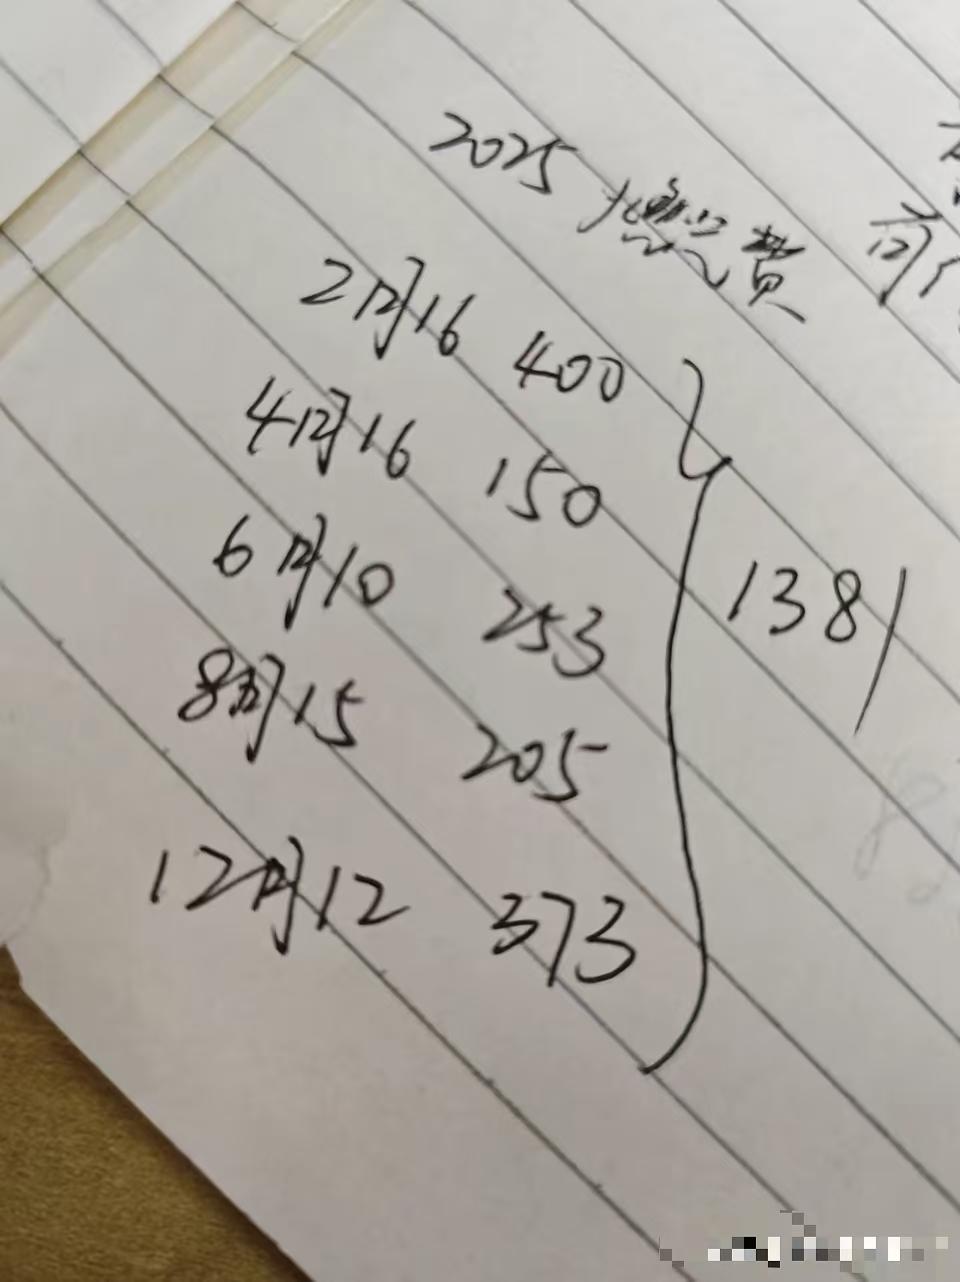 2025 燃气费
2月16 400
4月16 150
6月10 253
8月15 205
12月12 373
1381